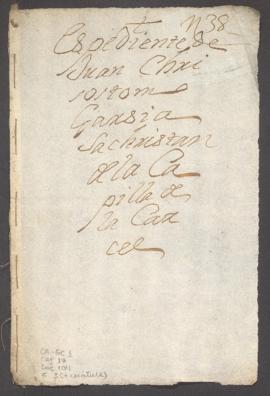 N 38
Espediente de
Juan Chri
sostomo
Garsia
Sachristan
de la Ca
pilla de
la Car
cel
CA-GC 1